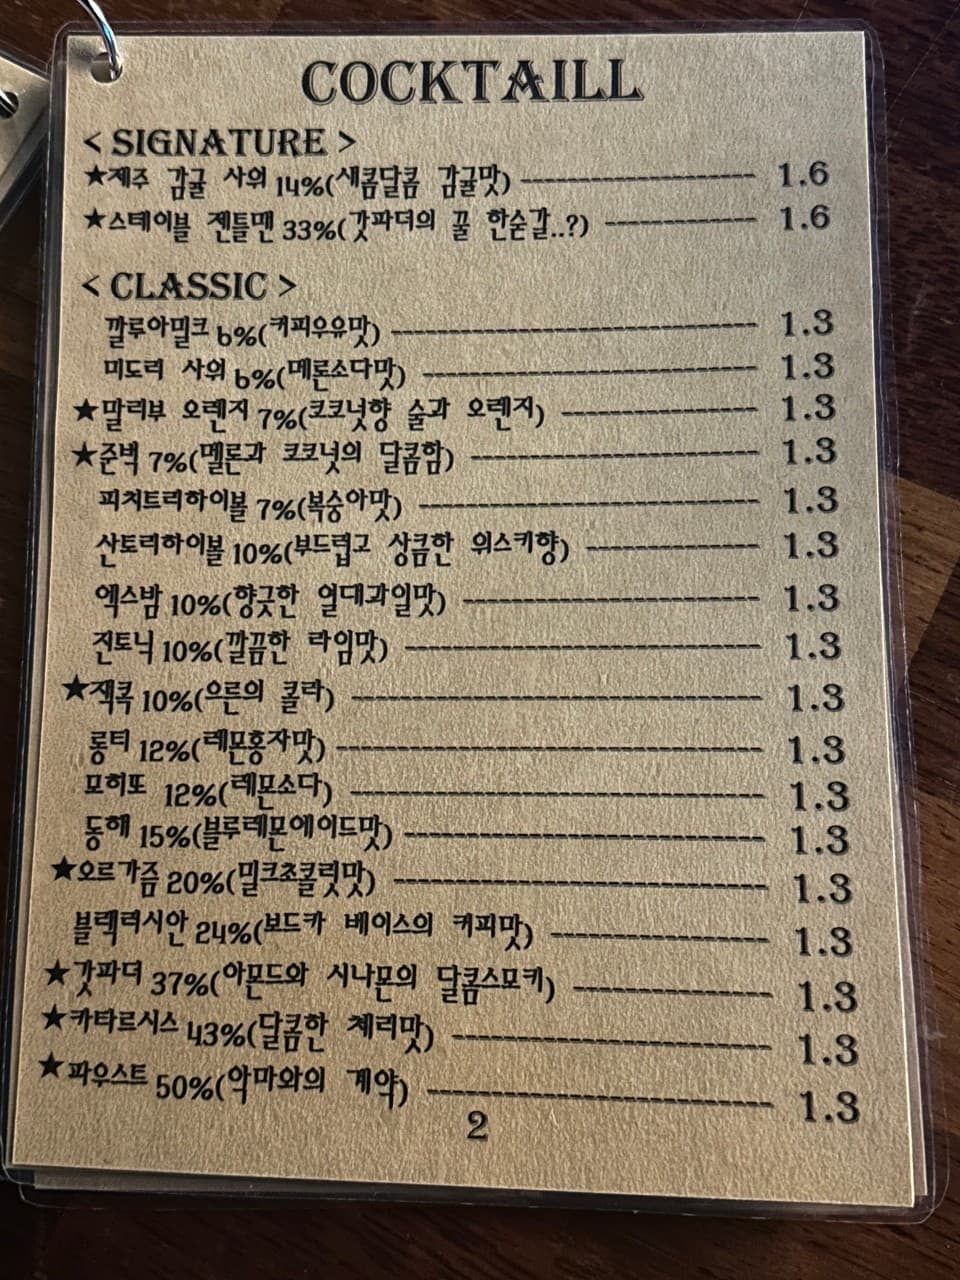 COCKTAILL
< SIGNATURE >
★제주 감귤 사워 14%(새콤달콤 감귤맛) ---------- 1.6
★스테이블 젠틀맨 33%(갓파더의 꿀 한숟갈..?) ---------- 1.6
< CLASSIC >
깔루아밀크 6%(커피우유맛) ---------- 1.3
미도리 사워 6%(메론소다맛) ---------- 1.3
★말리부 오렌지 7%(코코넛향 술과 오렌지) ---------- 1.3
★준벅 7%(멜론과 코코넛의 달콤함) ---------- 1.3
피치트리하이볼 7%(복숭아맛) ---------- 1.3
산토리하이볼 10%(부드럽고 상큼한 위스키향) ---------- 1.3
엑스밤 10%(향긋한 열대과일맛) ---------- 1.3
진토닉 10%(깔끔한 라임맛) ---------- 1.3
★잭콕 10%(으른의 콜라) ---------- 1.3
롱티 12%(레몬홍차맛) ---------- 1.3
모히또 12%(레몬소다) ---------- 1.3
동해 15%(블루레몬에이드맛) ---------- 1.3
★오르가즘 20%(밀크쵸콜릿맛) ---------- 1.3
블랙러시안 24%(보드카 베이스의 커피맛) ---------- 1.3
★갓파더 37%(아몬드와 시나몬의 달콤스모키) ---------- 1.3
★카타르시스 43%(달콤한 체리맛) ---------- 1.3
★파우스트 50%(악마와의 계약) ---------- 1.3
2